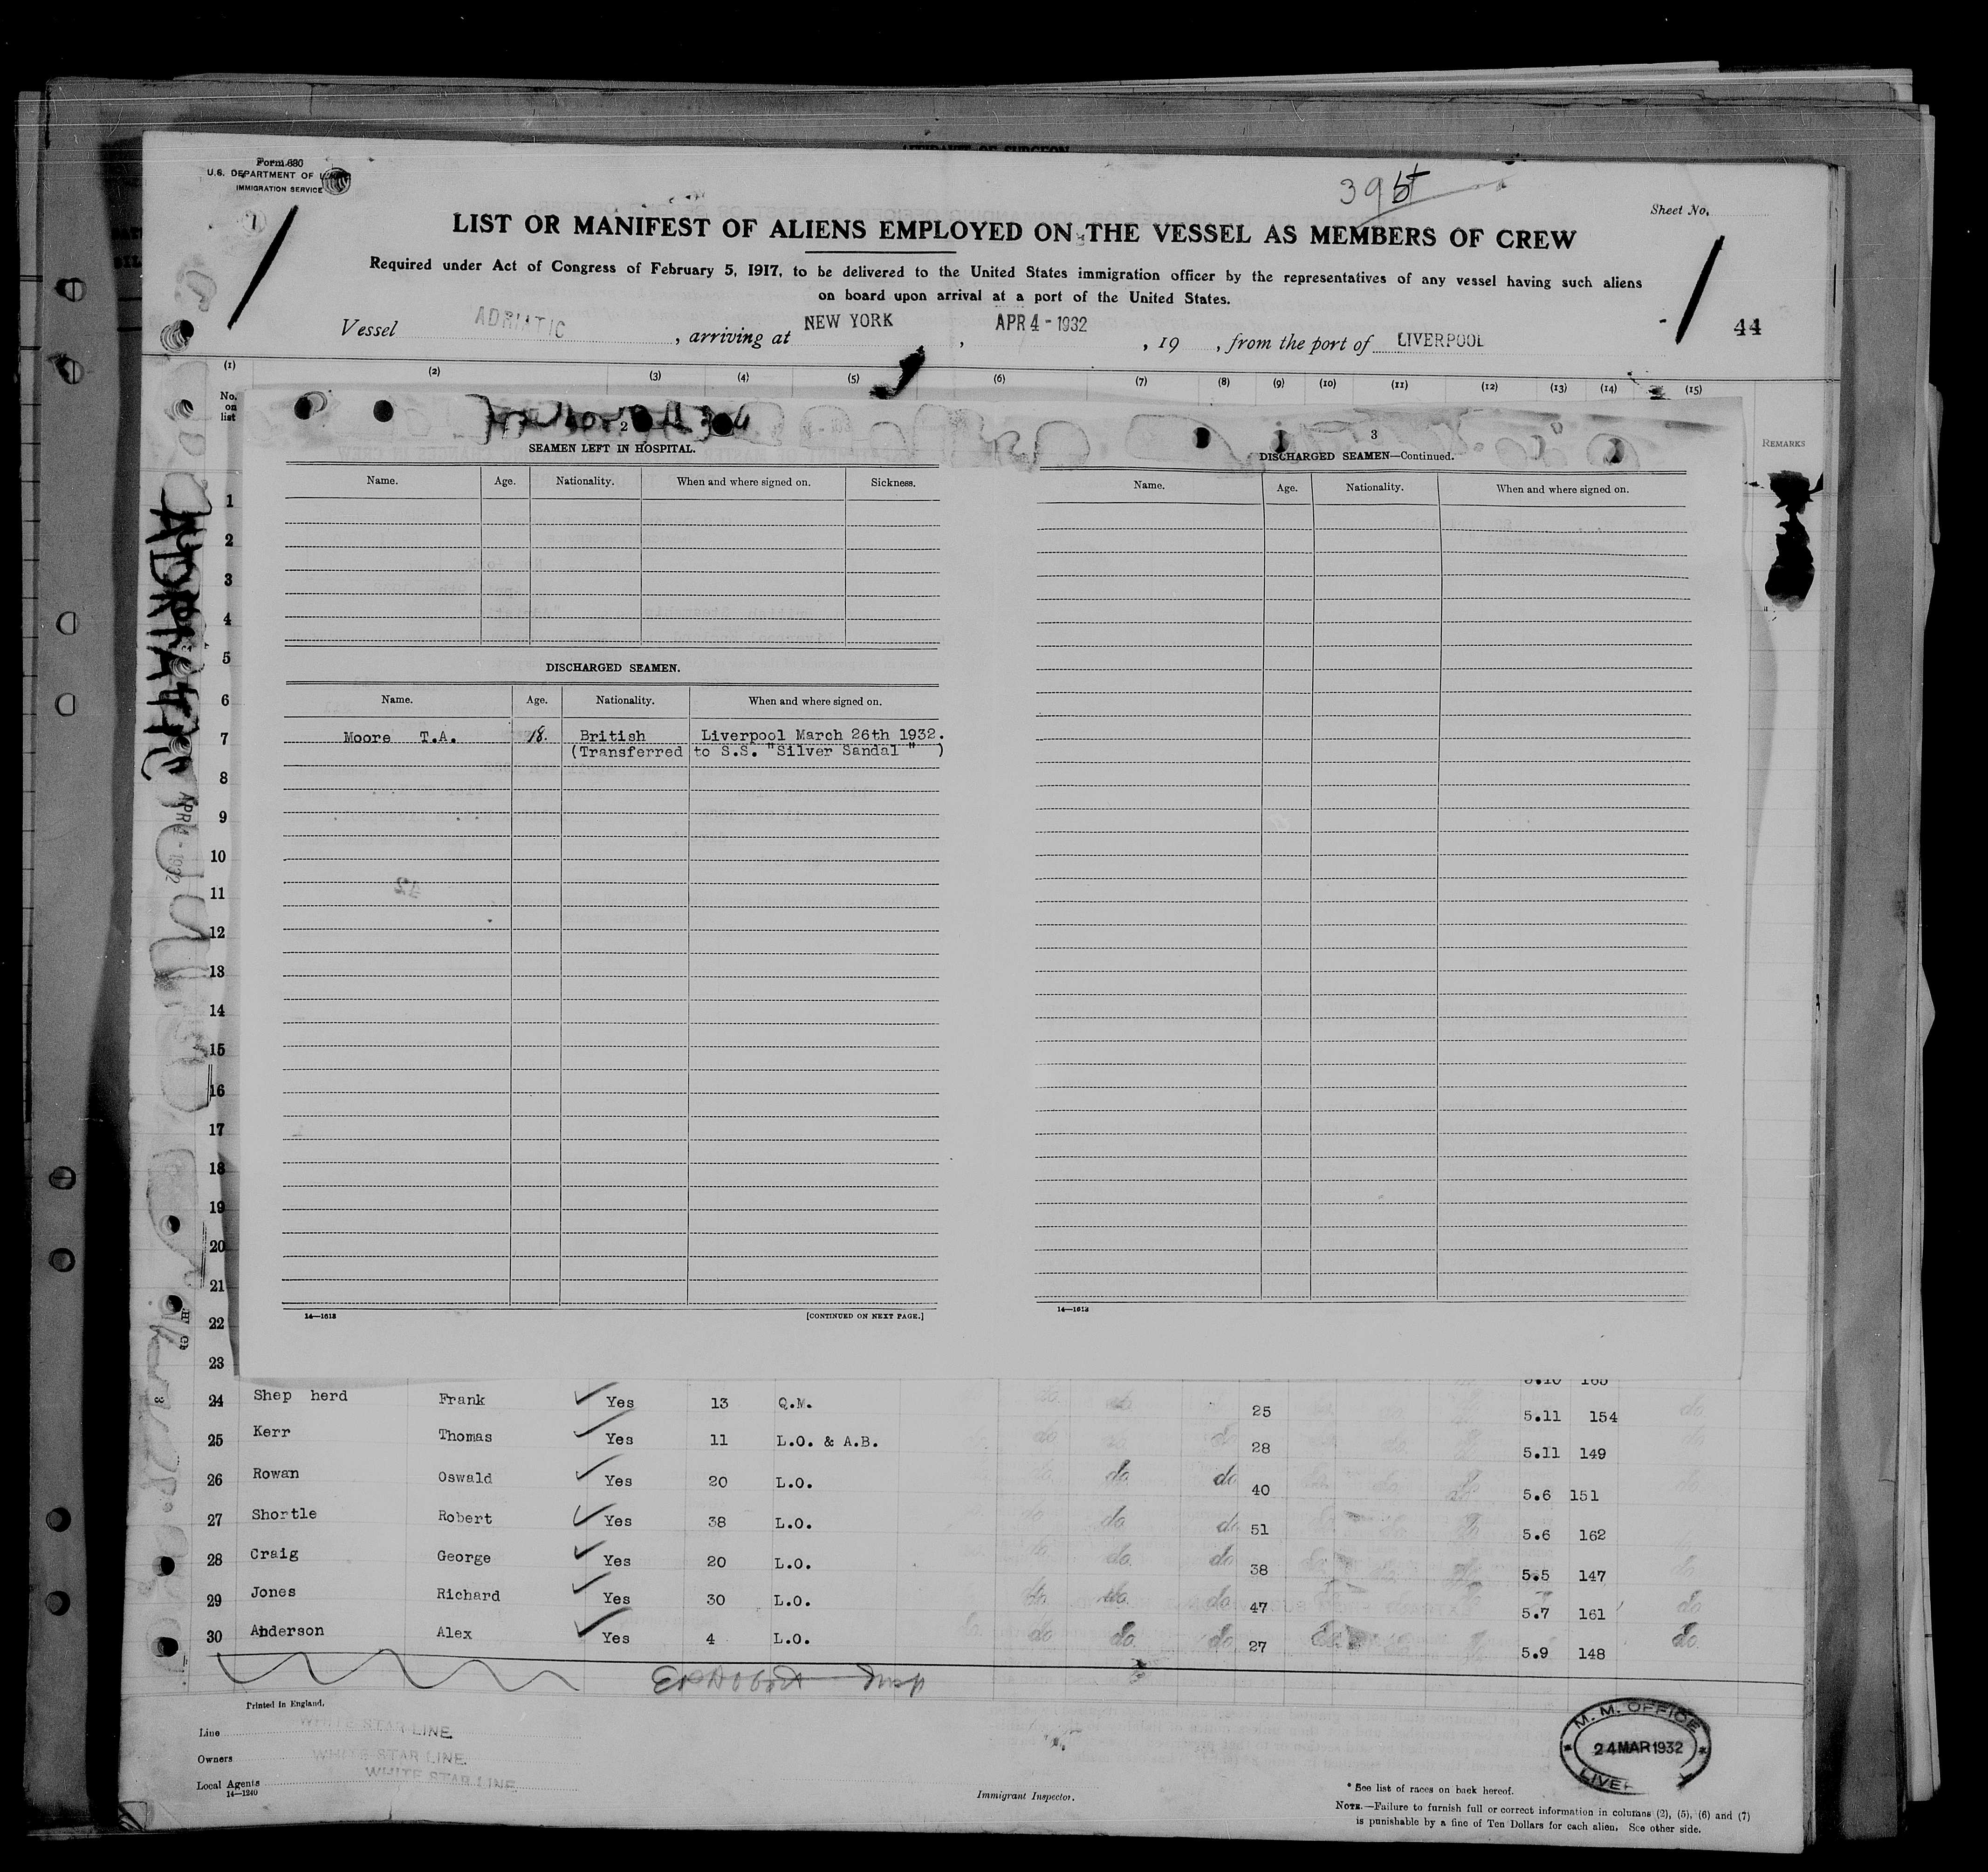 Form 680
U.S. DEPARTMENT OF
IMMIGRATION SERVICE
Sheet No.
LIST OR MANIFEST OF ALIENS EMPLOYED ON THE VESSEL AS MEMBERS OF CREW
Required under Act of Congress of February 5, 1917, to be delivered to the United States immigration officer by the representatives of any vessel having such aliens
on board upon arrival at a port of the United States.
Vessel ADRIATIC, arriving at NEW YORK, APR 4 - 1932, 19 , from the port of LIVERPOOL
44
(1) (2) (3) (4) (5) (6) (7) (8) (9) (10) (11) (12) (13) (14) (15)
No. on list
REMARKS
2
SEAMEN LEFT IN HOSPITAL.
Name. Age. Nationality. When and where signed on. Sickness.
DISCHARGED SEAMEN.
Name. Age. Nationality. When and where signed on.
Moore T.A. 18. British Liverpool March 26th 1932.
(Transferred to S.S. "Silver Sandal" )
14—1613 [CONTINUED ON NEXT PAGE.]
3
DISCHARGED SEAMEN—Continued.
Name. Age. Nationality. When and where signed on.
14—1613
ADRIATIC
APR 4 - 1932
1
2
3
4
5
6
7
8
9
10
11
12
13
14
15
16
17
18
19
20
21
22
23
24 Shep herd Frank Yes 13 Q.M. 25 5.11 154 do
25 Kerr Thomas Yes 11 L.O. & A.B. do do 28 5.11 149
26 Rowan Oswald Yes 20 L.O. do do 40 5.6 151
27 Shortle Robert Yes 38 L.O. do do 51 5.6 162
28 Craig George Yes 20 L.O. do do do 38 5.5 147
29 Jones Richard Yes 30 L.O. do do do 47 5.7 161 do
30 Anderson Alex Yes 4 L.O. do do do 27 5.9 148 do
Printed in England.
Line WHITE STAR LINE
Owners WHITE STAR LINE.
Local Agents WHITE STAR LINE
14—1240
Immigrant Inspector.
M. M. OFFICE
24 MAR 1932
* See list of races on back hereof.
NOTE.—Failure to furnish full or correct information in columns (2), (5), (6) and (7)
is punishable by a fine of Ten Dollars for each alien. See other side.